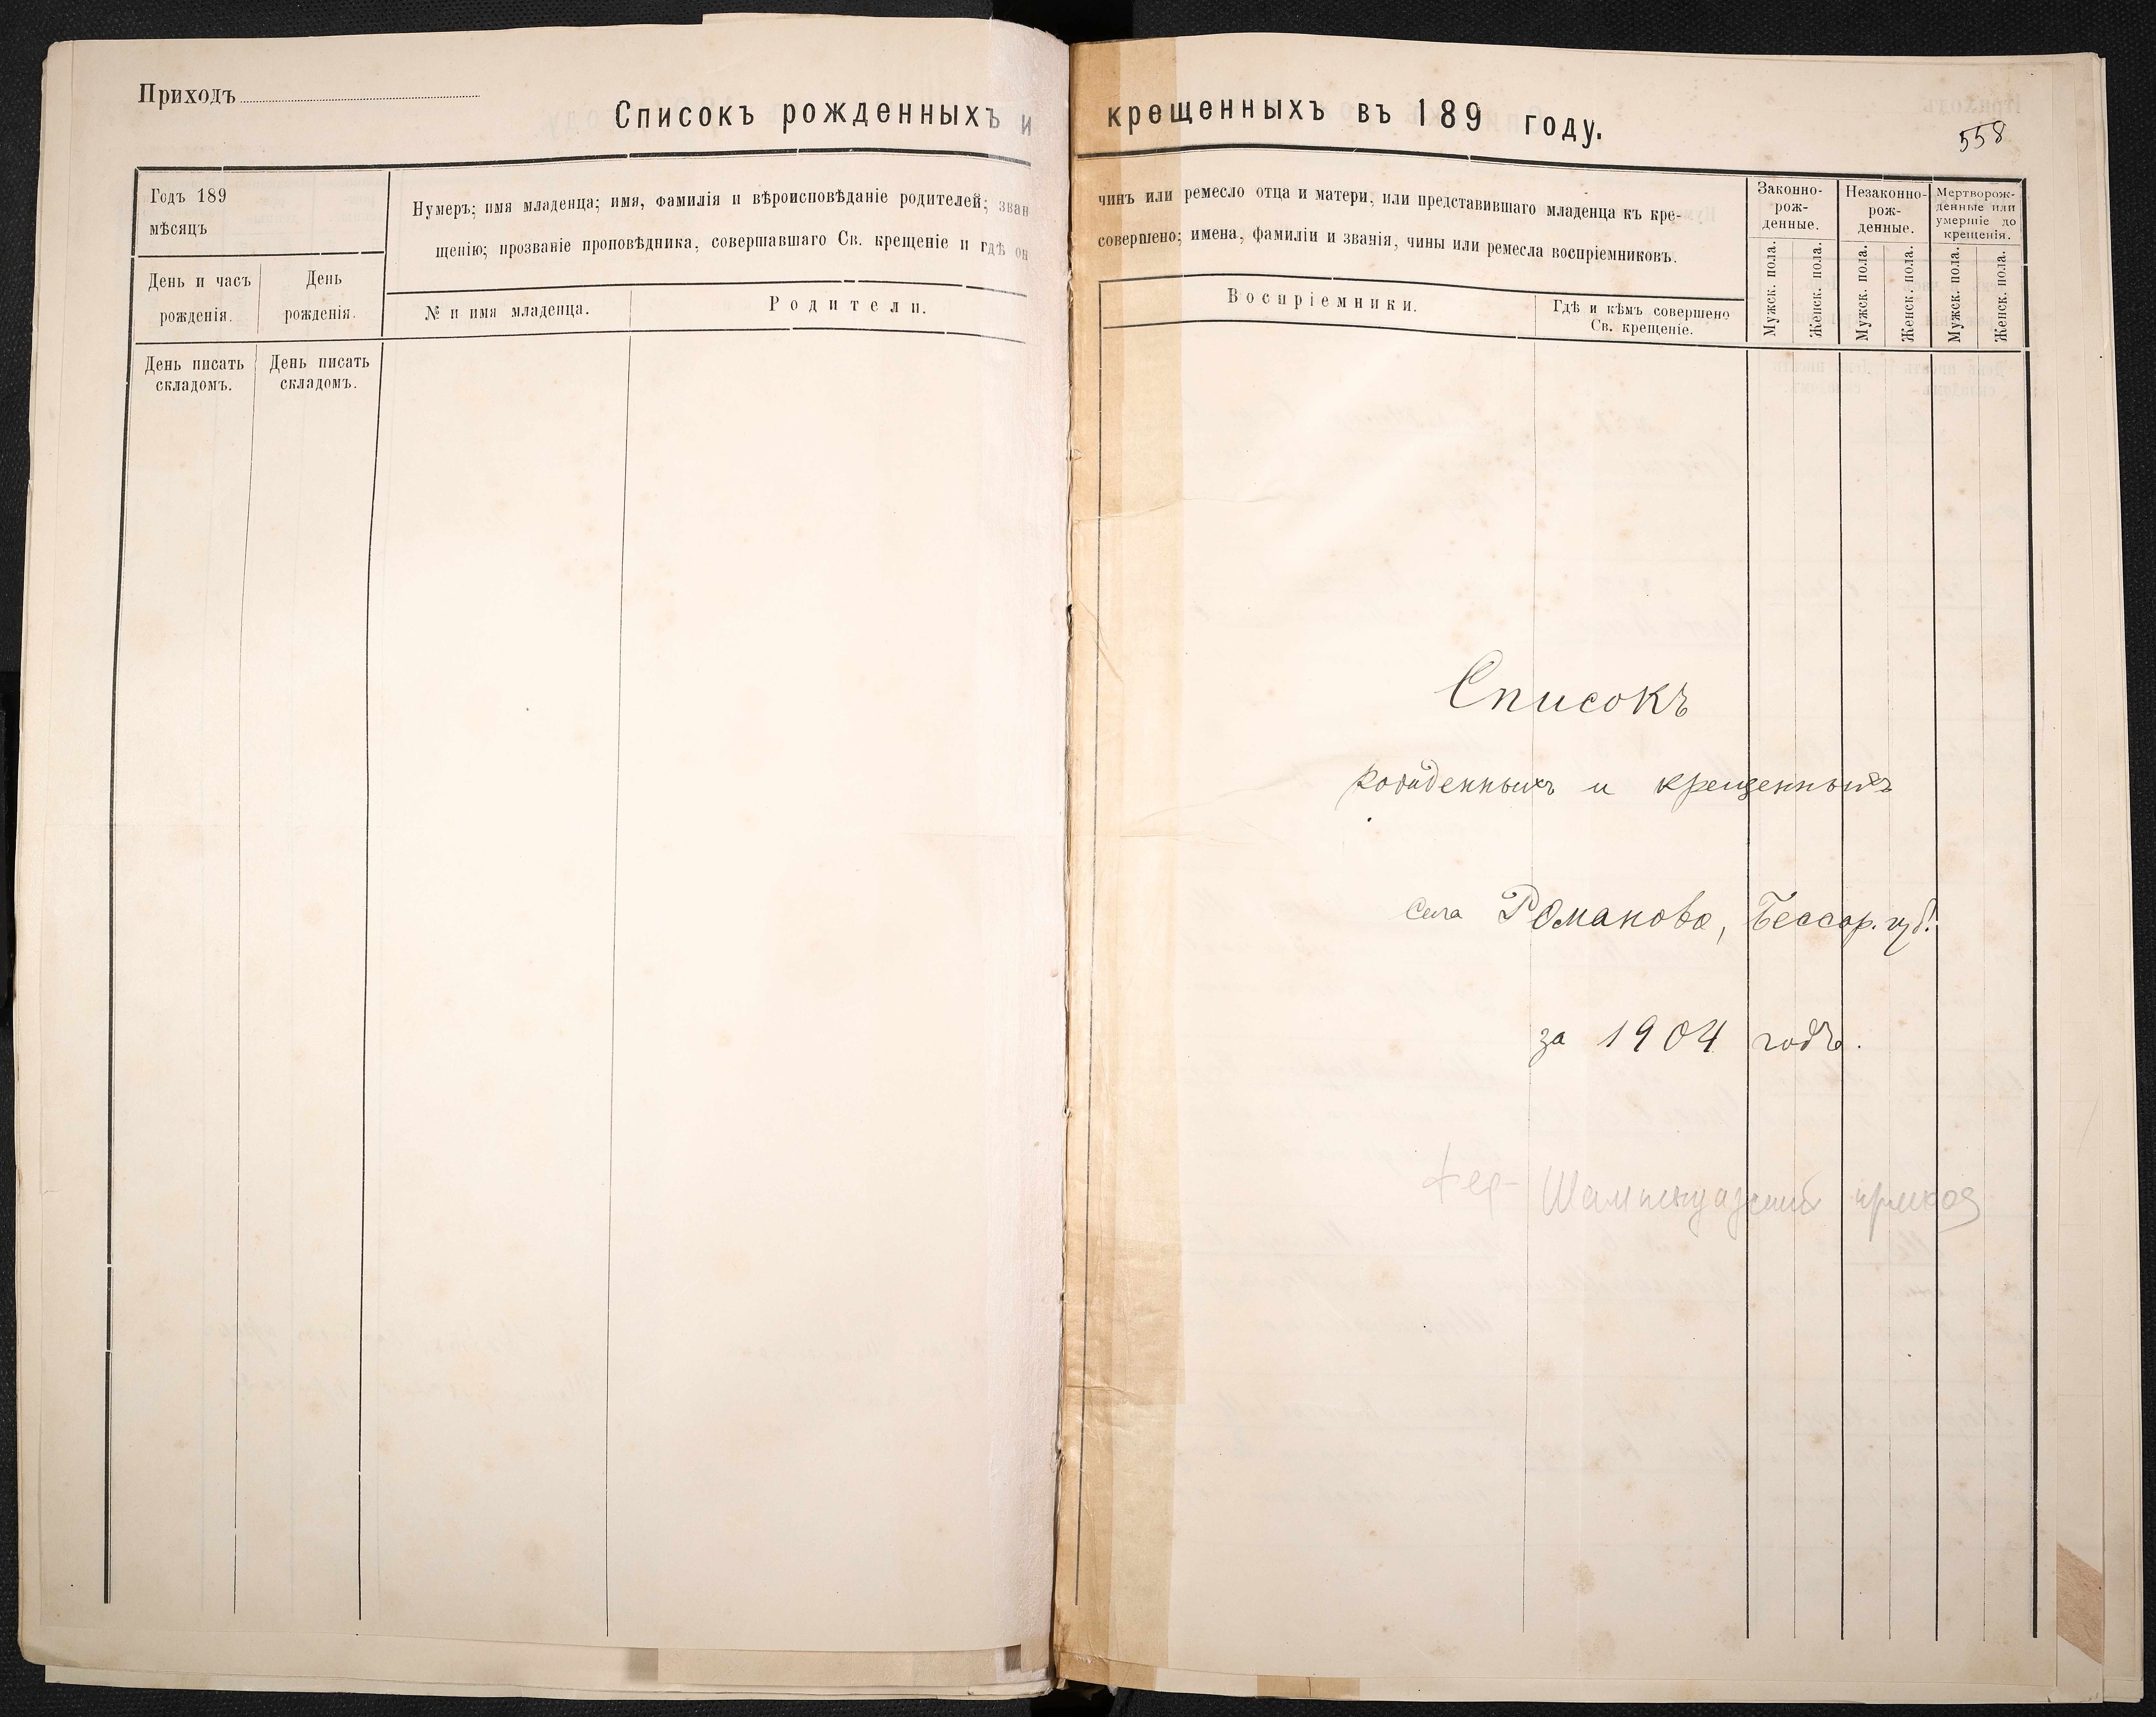 Приходъ
Списокъ рожденныхъ и крещенныхъ въ 189 году.
558
Годъ 189
мѣсяцъ
День и часъ рожденія.
День рожденія.
Нумеръ; имя младенца; имя, фамилія и вѣроисповѣданіе родителей; зван
щенію; прозваніе проповѣдника, совершавшаго Св. крещеніе и гдѣ он
№ и имя младенца.
Родители.
День писать складомъ.
День писать складомъ.
чинъ или ремесло отца и матери, или представившаго младенца къ кре-
совершено; имена, фамиліи и званія, чины или ремесла воспріемниковъ.
Воспріемники.
Гдѣ и кѣмъ совершено
Св. крещеніе.
Законно-
рож-
денные.
Незаконно-
рож-
денные.
Мертворож-
денные или
умершіе до
крещенія.
Мужск. пола.
Женск. пола.
Мужск. пола.
Женск. пола.
Мужск. пола.
Женск. пола.
Списокъ
рожденныхъ и крещенныхъ
села Романово, Бессар. губ.
за 1904 годъ.
приход